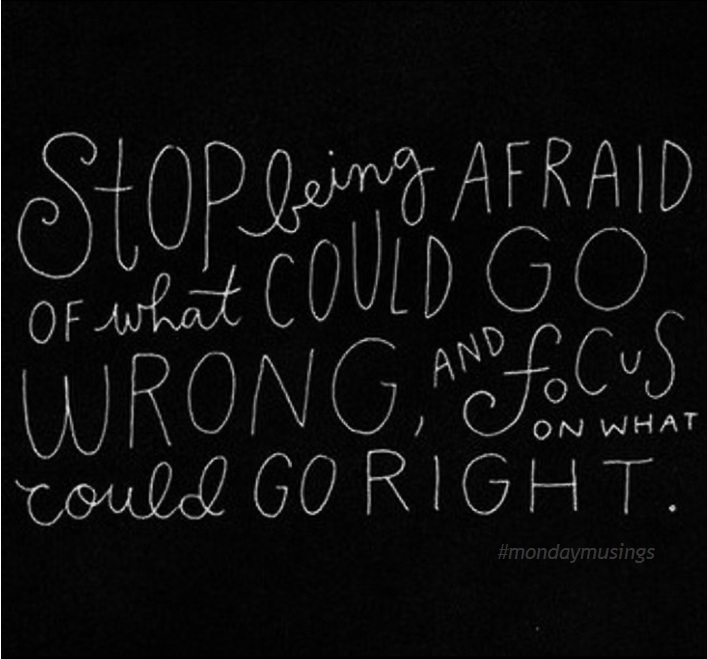 StOP being AFRAID
OF what COULD GO
WRONG, AND foCuS
ON WHAT
could GO RIGHT.
#mondaymusings